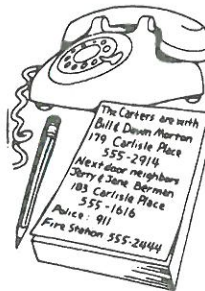 The Carters are with
Bill & Dawn Morton
179 Carlisle Place
555-2914
Next door neighbors
Jerry & Jane Berman
183 Carlisle Place
555-1616
Police: 911
Fire Station 555-2444